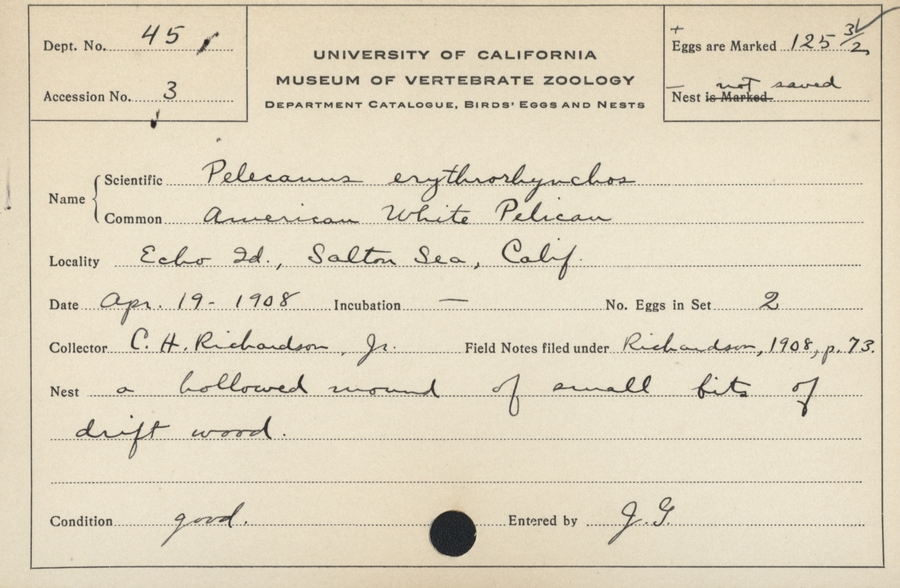 Dept. No. 45
Accession No. 3
UNIVERSITY OF CALIFORNIA
MUSEUM OF VERTEBRATE ZOOLOGY
DEPARTMENT CATALOGUE, BIRDS' EGGS AND NESTS
+
Eggs are Marked 125 3/2
— not saved
Nest is Marked
Name
Scientific Pelecanus erythrorhynchos
Common American White Pelican
Locality Echo Id., Salton Sea, Calif.
Date Apr. 19 - 1908 Incubation — No. Eggs in Set 2
Collector C. H. Richardson, Jr. Field Notes filed under Richardson, 1908, p. 73.
Nest a hollowed mound of small bits of
drift wood.
Condition good. Entered by J. G.